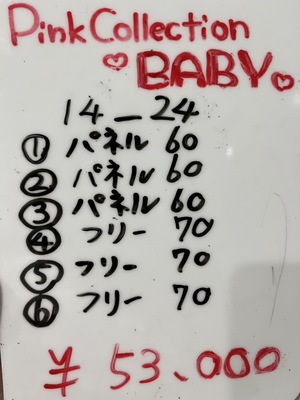 Pink Collection
♡BABY♡
14_24
① パネル 60
② パネル 60
③ パネル 60
④ フリー 70
⑤ フリー 70
⑥ フリー 70
¥53、000